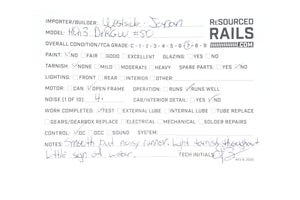 IMPORTER/BUILDER: Westside - Japan
MODEL: HOn3 D&RGW #50
RESOURCED RAILS .COM
OVERALL CONDITION/TCA GRADE: C-1-2-3-4-5-6-7-8-9
PAINT: NO FAIR GOOD EXCELLENT GLAZING YES NO
TARNISH: NONE MILD MODERATE HEAVY SPARE PARTS YES NO
LIGHTING: FRONT REAR INTERIOR OTHER
MOTOR: CAN OPEN FRAME OPERATION: RUNS RUNS WELL
NOISE (1 OF 10): 4 CAB/INTERIOR DETAIL: YES NO
WORK COMPLETED: TEST EXTERNAL LUBE INTERNAL LUBE TUBE REPLACE
GEARS/GEARBOX REPLACED ELECTRICAL MECHANICAL SOLDER REPAIRS
CONTROL: DC DCC SOUND SYSTEM:
NOTES: Smooth but noisy runner. Light tarnish throughout
Little sign of wear.
TECH INITIALS